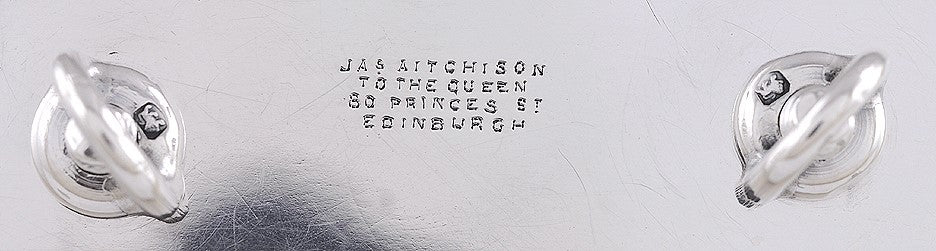 JAS AITCHISON
TO THE QUEEN
80 PRINCES ST
EDINBURGH